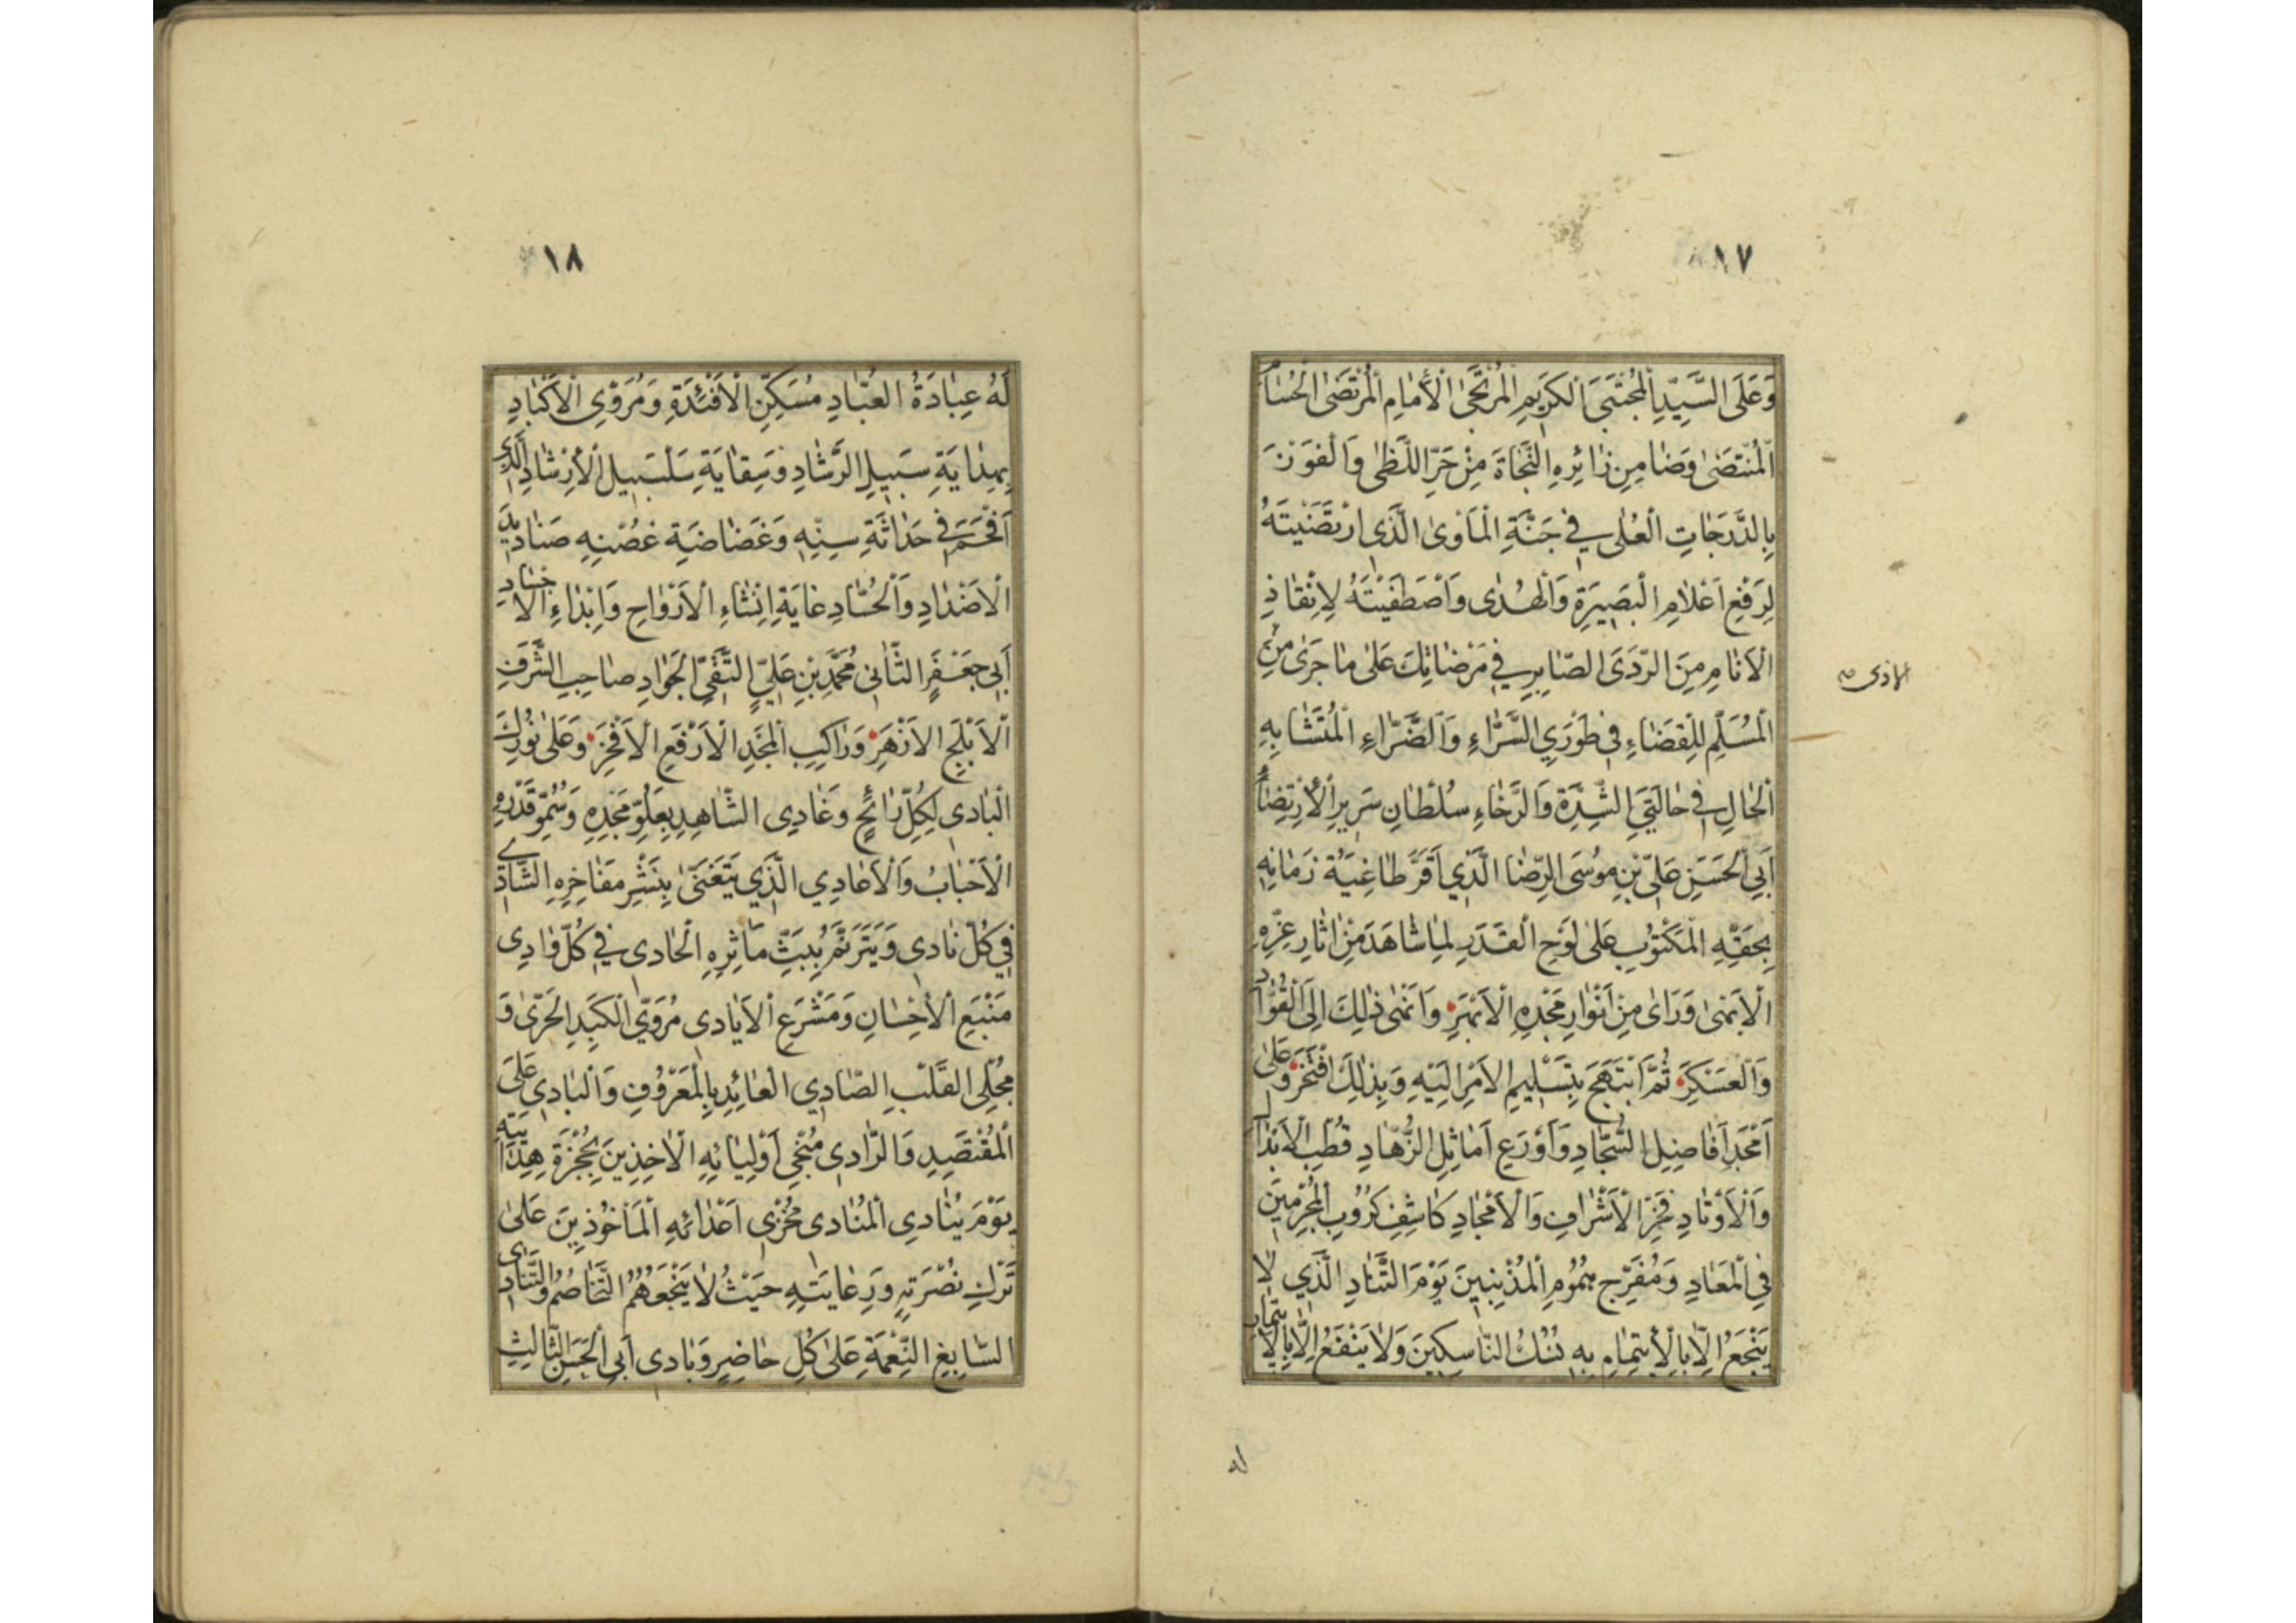 ١٧
وَعَلَى السَّيِّدِ الْمُجْتَبَى الْكَرِيمِ الْمُرْتَجَى الْأِمَامِ الْمُرْتَضَى الْحُسَامِ
الْمُنْتَضَى وَضَامِنِ زَائِرِهِ النَّجَاةَ مِنْ حَرِّ اللَّظَى وَالْفَوْزَ
بِالدَّرَجَاتِ الْعُلَى فِي جَنَّةِ الْمَأْوَى الَّذِي ارْتَضَيْتَهُ
لِرَفْعِ اَعْلَامِ الْبَصِيرَةِ وَالْهُدَى وَاصْطَفَيْتَهُ لِاِنْقَاذِ
الْاَنَامِ مِنَ الرَّدَى الصَّابِرِ فِي مَرْضَاتِكَ عَلَى مَا جَرَى مِنَ
الاذى
الْمُسَلِّمِ لِلْقَضَاءِ فِي طَوْرَيِ السَّرَّاءِ وَالضَّرَّاءِ الْمُتَشَابِهِ
الْحَالِ فِي حَالَتَيِ الشِّدَّةِ وَالرَّخَاءِ سُلْطَانِ سَرِيرِ الْأِرْتِضَاءِ
اَبِي الْحَسَنِ عَلِيِّ بْنِ مُوسَى الرِّضَا الَّذِي اَقَرَّ طَاغِيَةُ زَمَانِهِ
بِحَقِّهِ الْمَكْتُوبِ عَلَى لَوْحِ الْقَدَرِ لِمَا شَاهَدَ مِنْ اٰثَارِ عِزِّهِ
الْاَسْنَى وَرَاَى مِنْ اَنْوَارِ مَجْدِهِ الْاَبْهَرِ وَاَنْهَى ذٰلِكَ اِلَى الْقُوَّادِ
وَالْعَسْكَرِ ثُمَّ ابْتَهَجَ بِتَسْلِيمِ الْاَمْرِ اِلَيْهِ وَبِذٰلِكَ افْتَخَرَ وَعَلَى
اَمْجَدِ اَفَاضِلِ السُّجَّادِ وَاَوْرَعِ اَمَاثِلِ الزُّهَّادِ قُطْبِ الْاَبْدَالِ
وَالْاَوْتَادِ فَخْرِ الْاَشْرَافِ وَالْاَمْجَادِ كَاشِفِ كُرُوبِ الْمُجْرِمِينَ
فِي الْمَعَادِ وَمُفَرِّجِ هُمُومِ الْمُذْنِبِينَ يَوْمَ التَّنَادِ الَّذِي لَا
يَنْجَعُ اِلَّا بِالْأِيتِمَامِ بِهِ نُسُكُ النَّاسِكِينَ وَلَا يَنْفَعُ اِلَّا بِالْاِيتِمَامِ
له
١٨
لَهُ عِبَادَةُ الْعُبَّادِ مُسَكِّنِ الْاَفْئِدَةِ وَمُرَوِّي الْاَكْبَادِ
بِهِدَايَةِ سَبِيلِ الرَّشَادِ وَسِقَايَةِ سَلْسَبِيلِ الْأِرْشَادِ الَّذِي
اَفْحَمَ فِي حَدَاثَةِ سِنِّهِ وَغَضَاضَةِ غُصْنِهِ صَنَادِيدَ
الْاَضْدَادِ وَالْحُسَّادِ غَايَةِ اِنْشَاءِ الْاَرْوَاحِ وَاِبْدَاءِ الْاَجْسَادِ
اَبِي جَعْفَرٍ الثَّانِي مُحَمَّدِ بْنِ عَلِيٍّ التَّقِيِّ الْجَوَادِ صَاحِبِ الشَّرَفِ
الْاَبْلَجِ الْاَزْهَرِ وَرَاكِبِ الْمَجْدِ الْاَرْفَعِ الْاَفْخَرِ وَعَلَى نُورِكَ
الْبَادِي لِكُلِّ رَائِحٍ وَغَادِي الشَّاهِدِ بِعُلُوِّ مَجْدِهِ وَسُمُوِّ قَدْرِهِ
الْاَحْبَابُ وَالْاَعَادِي الَّذِي يَتَغَنَّى بِنَشْرِ مَفَاخِرِهِ الشَّادِي
فِي كُلِّ نَادِي وَيَتَرَنَّمُ بِبَثِّ مَآثِرِهِ الْحَادِي فِي كُلِّ وَادِي
مَنْبَعِ الْأِحْسَانِ وَمَشْرَعِ الْاَيَادِي مُرَوِّي الْكَبِدِ الْحَرَّى وَ
مُجْلِي الْقَلْبِ الصَّادِي الْعَائِدِ بِالْمَعْرُوفِ وَالْبَادِي عَلَى
الْمُقْتَصِدِ وَالرَّادِي مُنْجِي اَوْلِيَائِهِ الْاٰخِذِينَ بِحُجْزَةِ هِدَايَتِهِ
يَوْمَ يُنَادِي الْمُنَادِي مُخْزِي اَعْدَائِهِ الْمَأْخُوذِينَ عَلَى
تَرْكِ نُصْرَتِهِ وَرِعَايَتِهِ حَيْثُ لَا يَنْجَعُهُمُ التَّخَاصُمُ وَالتَّنَادِي
السَّابِغِ النِّعْمَةِ عَلَى كُلِّ حَاضِرٍ وَبَادِي اَبِي الْحَسَنِ الثَّالِثِ